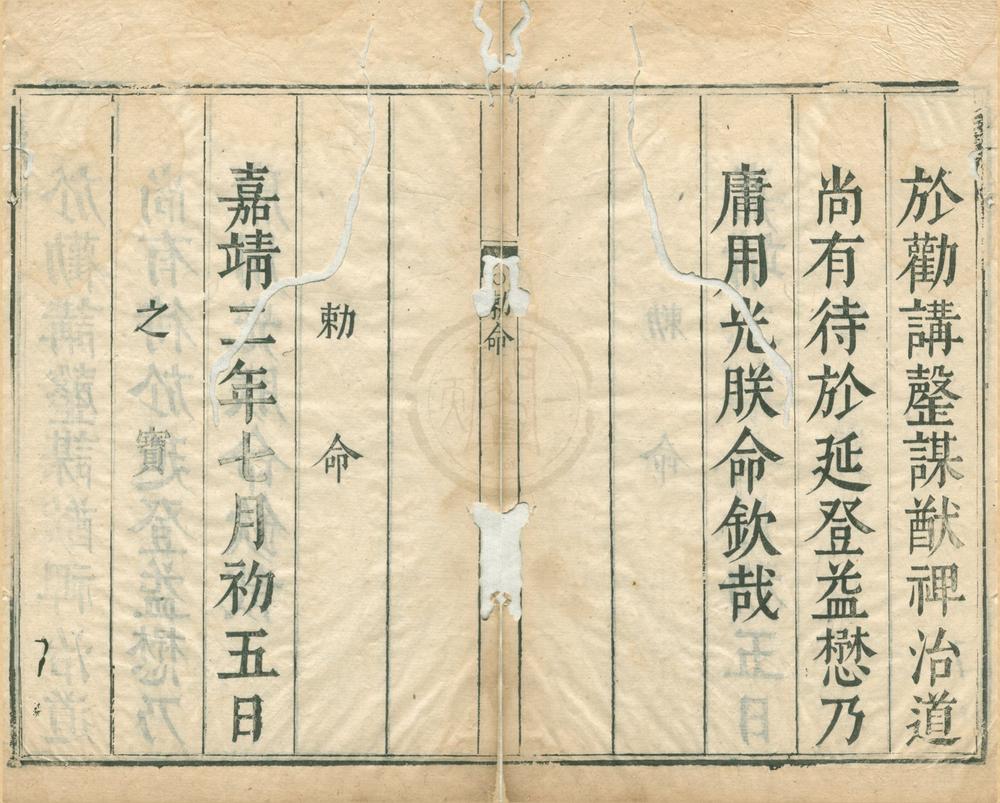 於勸講罄謀猷裨治道
尚有待於延登益懋乃
庸用光朕命欽哉
勅命
勅命
嘉靖二年七月初五日
之寶